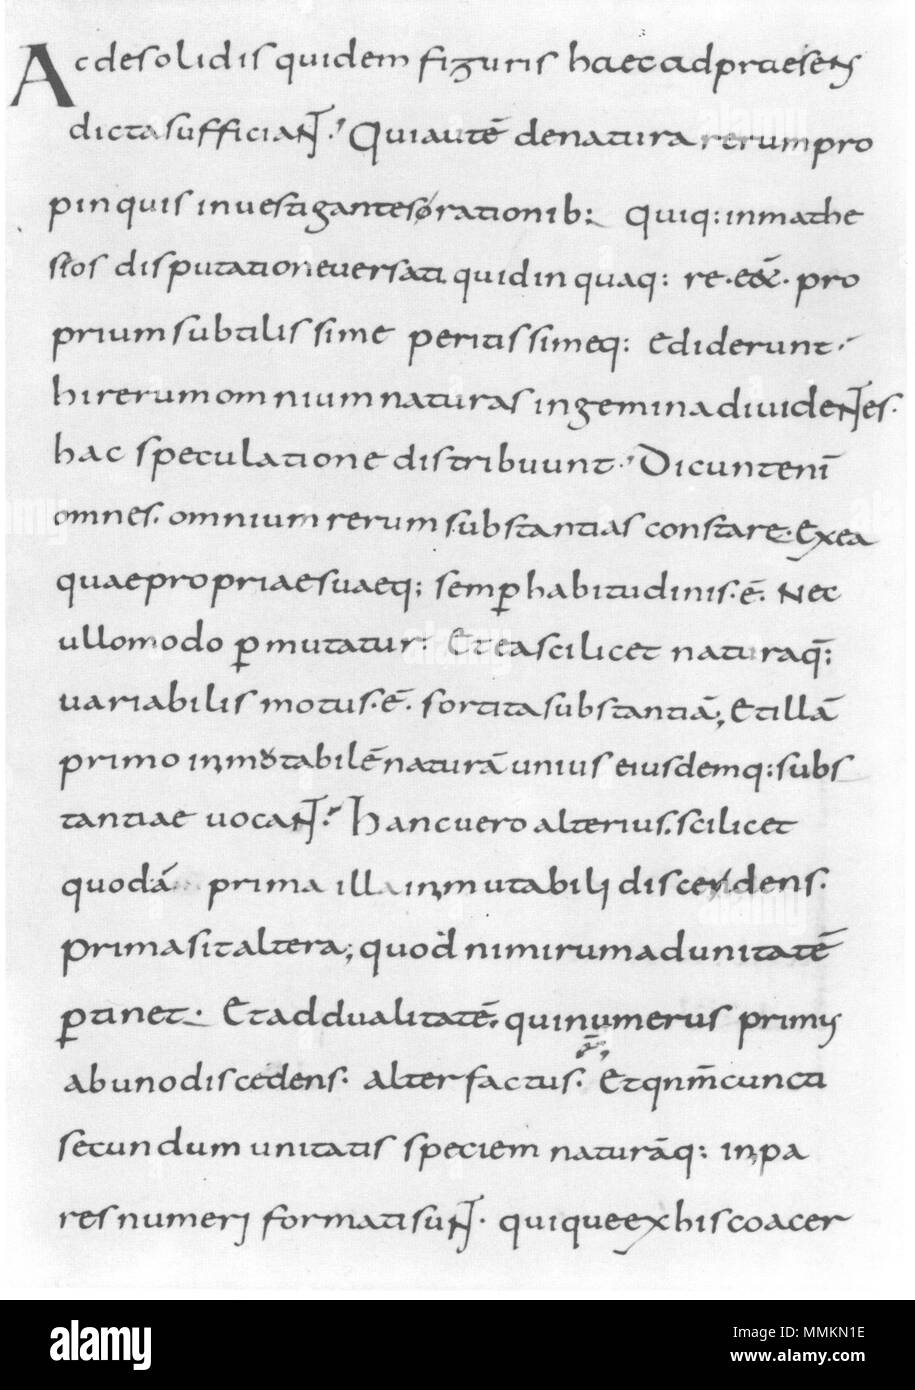 Ac de solidis quidem figuris haec ad praesens
dicta sufficiaNT. Qui autē de natura rerum pro
pinquis inuestigantes rationib: Quiq: in mathe
seos disputatione uersati quid in quaq: re. eēt. pro
prium subtilissime peritissimeq: ediderunt.
hi rerum omnium naturas in gemina diuideNTes.
hac speculatione distribuunt. Dicunt eni
omnes. omnium rerum substantias constare. Ex ea
quae propriae suaeq; semp habitudinis. ē. Nec
ullomodo pmutatur. Et ea scilicet natura q̄;
uariabilis motus. ē. sortita substantiā; Et illā
primo inmutabilē naturā unius eiusdemq: subs
tantiae uocaNT. Hanc uero alterius. scilicet
quod ā prima illa inmutabili discedens.
prima sit altera; quod nimirum ad unitatē
ptinet. Et ad dualitatē. qui numerus primus
ab uno discedens. alter factus. Et qnm̄ cuncti
secundum unitatis speciem naturāq: inpa
res numeri formati suNT. quique ex his coacer
alamy
Image ID: MMKN1E
www.alamy.com